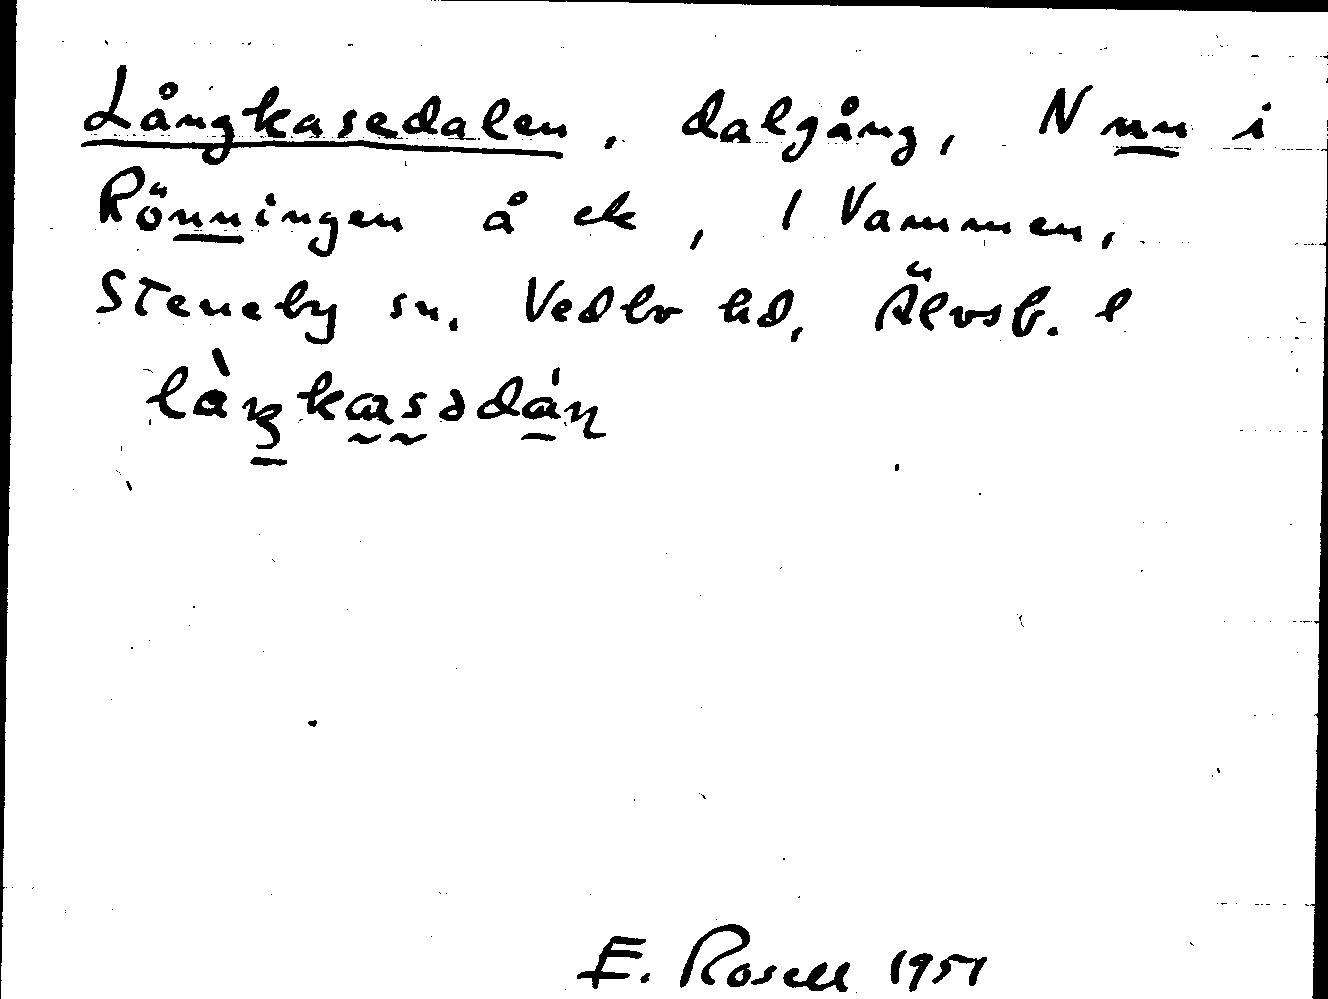 Långkasedalen, dalgång, N nn i
Rönningen å ek, 1 Vammen,
Steneby sn. Vedbo hd, Älvsb. l
E. Rosell 1951